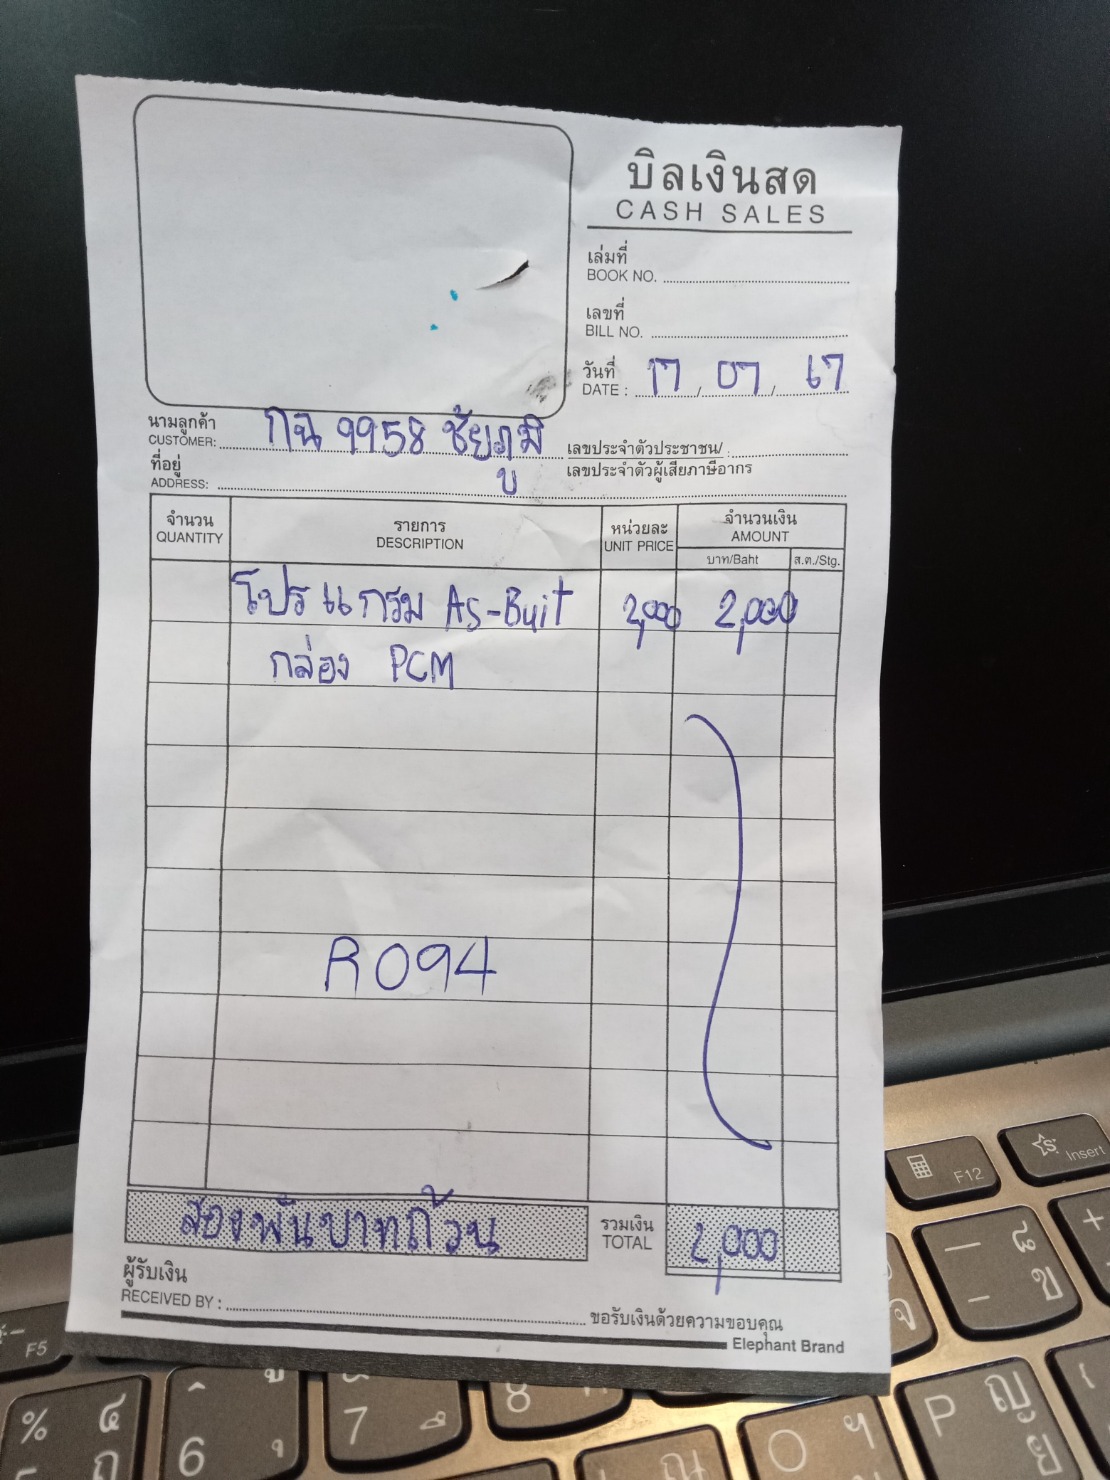 บิลเงินสด
CASH SALES
เล่มที่
BOOK NO.
เลขที่
BILL NO.
วันที่
DATE : 17 / 07 / 67
นามลูกค้า
CUSTOMER: กฉ 9958 ชัยภูมิ
เลขประจำตัวประชาชน/
เลขประจำตัวผู้เสียภาษีอากร
ที่อยู่
ADDRESS:
จำนวน รายการ หน่วยละ จำนวนเงิน
QUANTITY DESCRIPTION UNIT PRICE AMOUNT
บาท/Baht ส.ต./Stg.
โปรแกรม As-Buit 2,000 2,000
กล่อง PCM
R094
สองพันบาทถ้วน รวมเงิน
TOTAL 2,000
ผู้รับเงิน
RECEIVED BY :
ขอรับเงินด้วยความขอบคุณ
Elephant Brand
F12
Insert
F5
% ๔
ถ
6
7
8
9
O ฯ
P ญ
ย
- ๘
- ข
+
จ
ณ